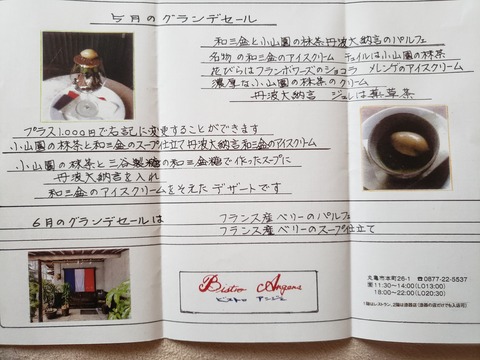 5月のグランデセール
和三盆と小山園の抹茶丹波大納言のパルフェ
名物の和三盆のアイスクリーム チュイルは小山園の抹茶
花びらはフランボワーズのショコラ メレンゲのアイスクリーム
濃厚な小山園の抹茶のクリーム
丹波大納言 ジュレは
プラス1,000円で右記に変更することができます
小山園の抹茶と和三盆のスープ仕立て 丹波大納言和三盆のアイスクリーム
小山園の抹茶と三谷製糖の和三盆糖で作ったスープに
丹波大納言を入れ
和三盆のアイスクリームをそえたデザートです
6月のグランデセールは
フランス産ベリーのパルフェ
フランス産ベリーのスープ仕立て
Bistro Angers
ビストロ アンジェ
丸亀市本町26-1 ☎0877-22-5537
11:30~14:00(LO13:00)
18:00~22:00(LO20:30)